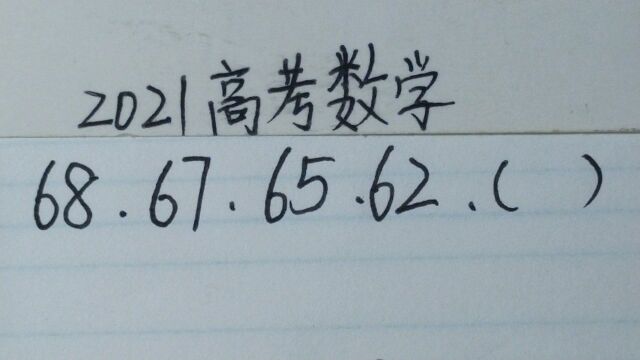 2021高考数学
68.67.65.62.( )